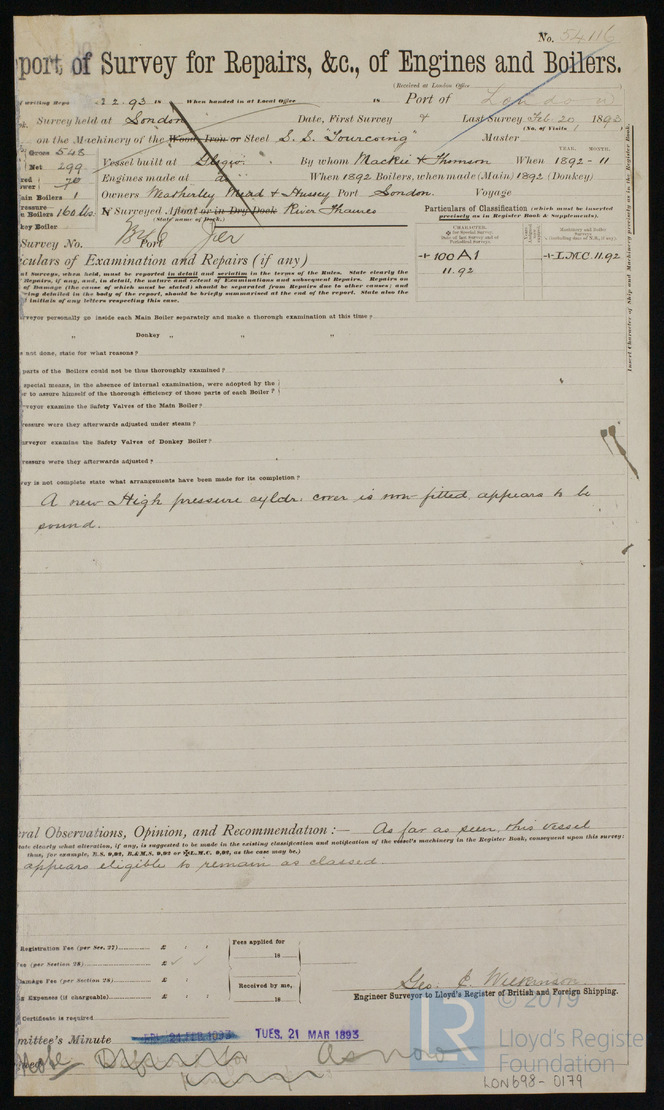 No. 54116
port of Survey for Repairs, &c., of Engines and Boilers.
(Received at London Office
of writing Repo 22.93 18 When handed in at Local Office 18 Port of London
Survey held at London Date, First Survey & Last Survey Feb. 20 1893
(No. of Visits 1)
on the Machinery of the Wood, Iron or Steel S.S. "Tourcoing" Master
Gross 548
Net 299
YEAR. MONTH.
Vessel built at Glsgw. By whom Mackie & Thomson When 1892-11
Power 70
Engines made at do When 1892 Boilers, when made (Main) 1892 (Donkey)
ain Boilers 1
Owners Weatherley Mead & Hussey Port London. Voyage
ressure
n Boilers 160 lbs.
N Surveyed Afloat or in Dry Dock River Thames
(State name of Dock.)
key Boiler
Survey No. Port
Particulars of Classification (which must be inserted
precisely as in Register Book & Supplements).
CHARACTER.
for Special Survey
Date of last Survey and of
Periodical Surveys
Machinery and Boiler
Surveys
(including date of N.B., if any).
+100A1
11.92
+L.M.C. 11.92
Insert Character of Ship and Machinery precisely as in the Register Book.
culars of Examination and Repairs (if any)
at Surveys, when held, must be reported in detail and seriatim in the terms of the Rules. State clearly the
Repairs, if any, and, in detail, the nature and extent of Examinations and subsequent Repairs. Repairs on
of Damage (the cause of which must be stated) should be separated from Repairs due to other causes; and
being detailed in the body of the report, should be briefly summarised at the end of the report. State also the
initials of any letters respecting this case.
rveyor personally go inside each Main Boiler separately and make a thorough examination at this time?
" Donkey " " "
e not done, state for what reasons?
parts of the Boilers could not be thus thoroughly examined?
special means, in the absence of internal examination, were adopted by the
or to assure himself of the thorough efficiency of those parts of each Boiler?
rveyor examine the Safety Valves of the Main Boiler?
ressure were they afterwards adjusted under steam?
urveyor examine the Safety Valves of Donkey Boiler?
ressure were they afterwards adjusted?
vey is not complete state what arrangements have been made for its completion?
A new High pressure cyldr. cover is now fitted appears to be
sound.
ral Observations, Opinion, and Recommendation :— As far as seen this vessel
tate clearly what alteration, if any, is suggested to be made in the existing classification and notification of the vessel's machinery in the Register Book, consequent upon this survey:
thus, for example, B.S. 9,92, B.&M.S. 9,92 or L.M.C. 9,92, as the case may be.)
appears eligible to remain as classed
Registration Fee (per Sec. 27) £
Fee (per Section 28) £
Damage Fee (per Section 28) £
g Expenses (if chargeable) £
Fees applied for
18
Received by me,
18
Geo. E. Wilkinson
Engineer Surveyor to Lloyd's Register of British and Foreign Shipping.
Certificate is required
mittee's Minute FRI. 24 FEB 1893 TUES. 21 MAR 1893
As now
© 2019
LR
Lloyd's Register
Foundation
LON698-0179